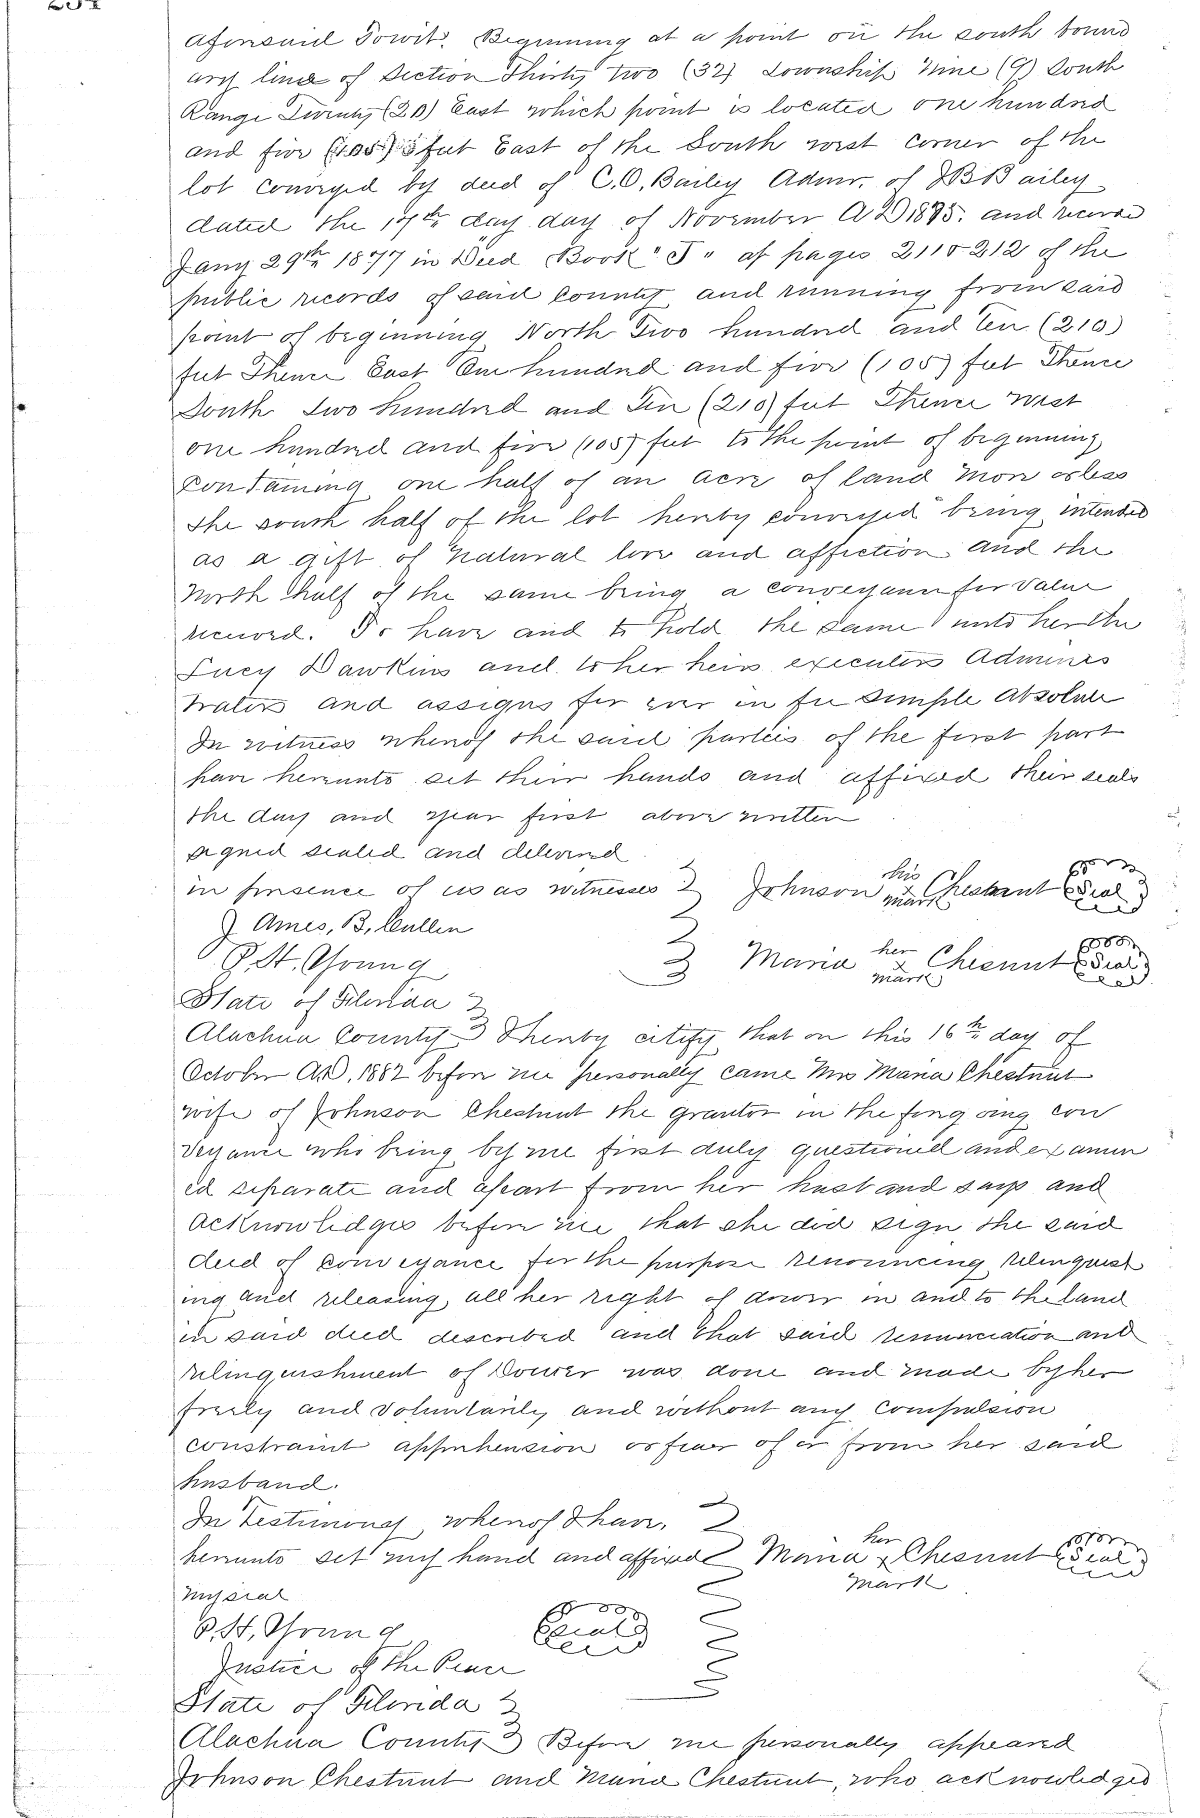 aforesaid Towit. Beginning at a point on the south bound
ary line of Section Thirty two (32) Township Nine (9) South
Range Twenty (20) East which point is located one hundred
and five (105) feet East of the South west corner of the
lot conveyed by deed of C.O. Bailey Admr. of JB Bailey
dated the 17th day day of November AD 1875. and recorded
Jany 29th 1877 in Deed Book "J" at pages 211 & 212 of the
public records of said county and running from said
point of beginning North Two hundred and Ten (210)
feet Thence East One hundred and five (105) feet Thence
South two hundred and Ten (210) feet Thence West
one hundred and five (105) feet to the point of beginning
Containing one half of an acre of land more or less
The south half of the lot hereby conveyed being intended
as a gift of Natural love and affection and the
North half of the same being a conveyance for value
received. To have and to hold the same unto her the
Lucy Dawkins and to her heirs executers Adminis
trators and assigns for ever in fee simple absolute
In witness whereof the said parteis of the first part
have hereunto set their hands and affixed their seals
the day and year first above written
signed sealed and delivered
in presence of us as witnesses Johnson his x mark Chestnut Seal
J Ames, B, Cullen
P. H. Young Maria her x mark Chesnut Seal
State of Florida
Alachua County I hereby citify that on this 16th day of
October A.D. 1882 before me personally came Mrs Maria Chestnut
wife of Johnson Chestnut the grantor in the forgoing con
veyance who being by me first duly questioned and examin
ed separate and apart from her husband says and
acknowledges before me that she did sign the said
deed of conveyance for the purpose renouncing relinquish
ing and releasing all her right of dower in and to the land
in said deed described and that said renunciation and
relinquishment of Dower was done and made by her
freely and voluntarily and without any compulsion
constraint apprehension or fear of or from her said
husband.
In Testimony whereof I have,
hereunto set my hand and affixed Maria her x mark Chesnut Seal
my seal
P. H. Young Seal
Justice of the Peace
State of Florida
Alachua County Before me personally appeared
Johnson Chestnut and Maria Chestnut, who acknowledged